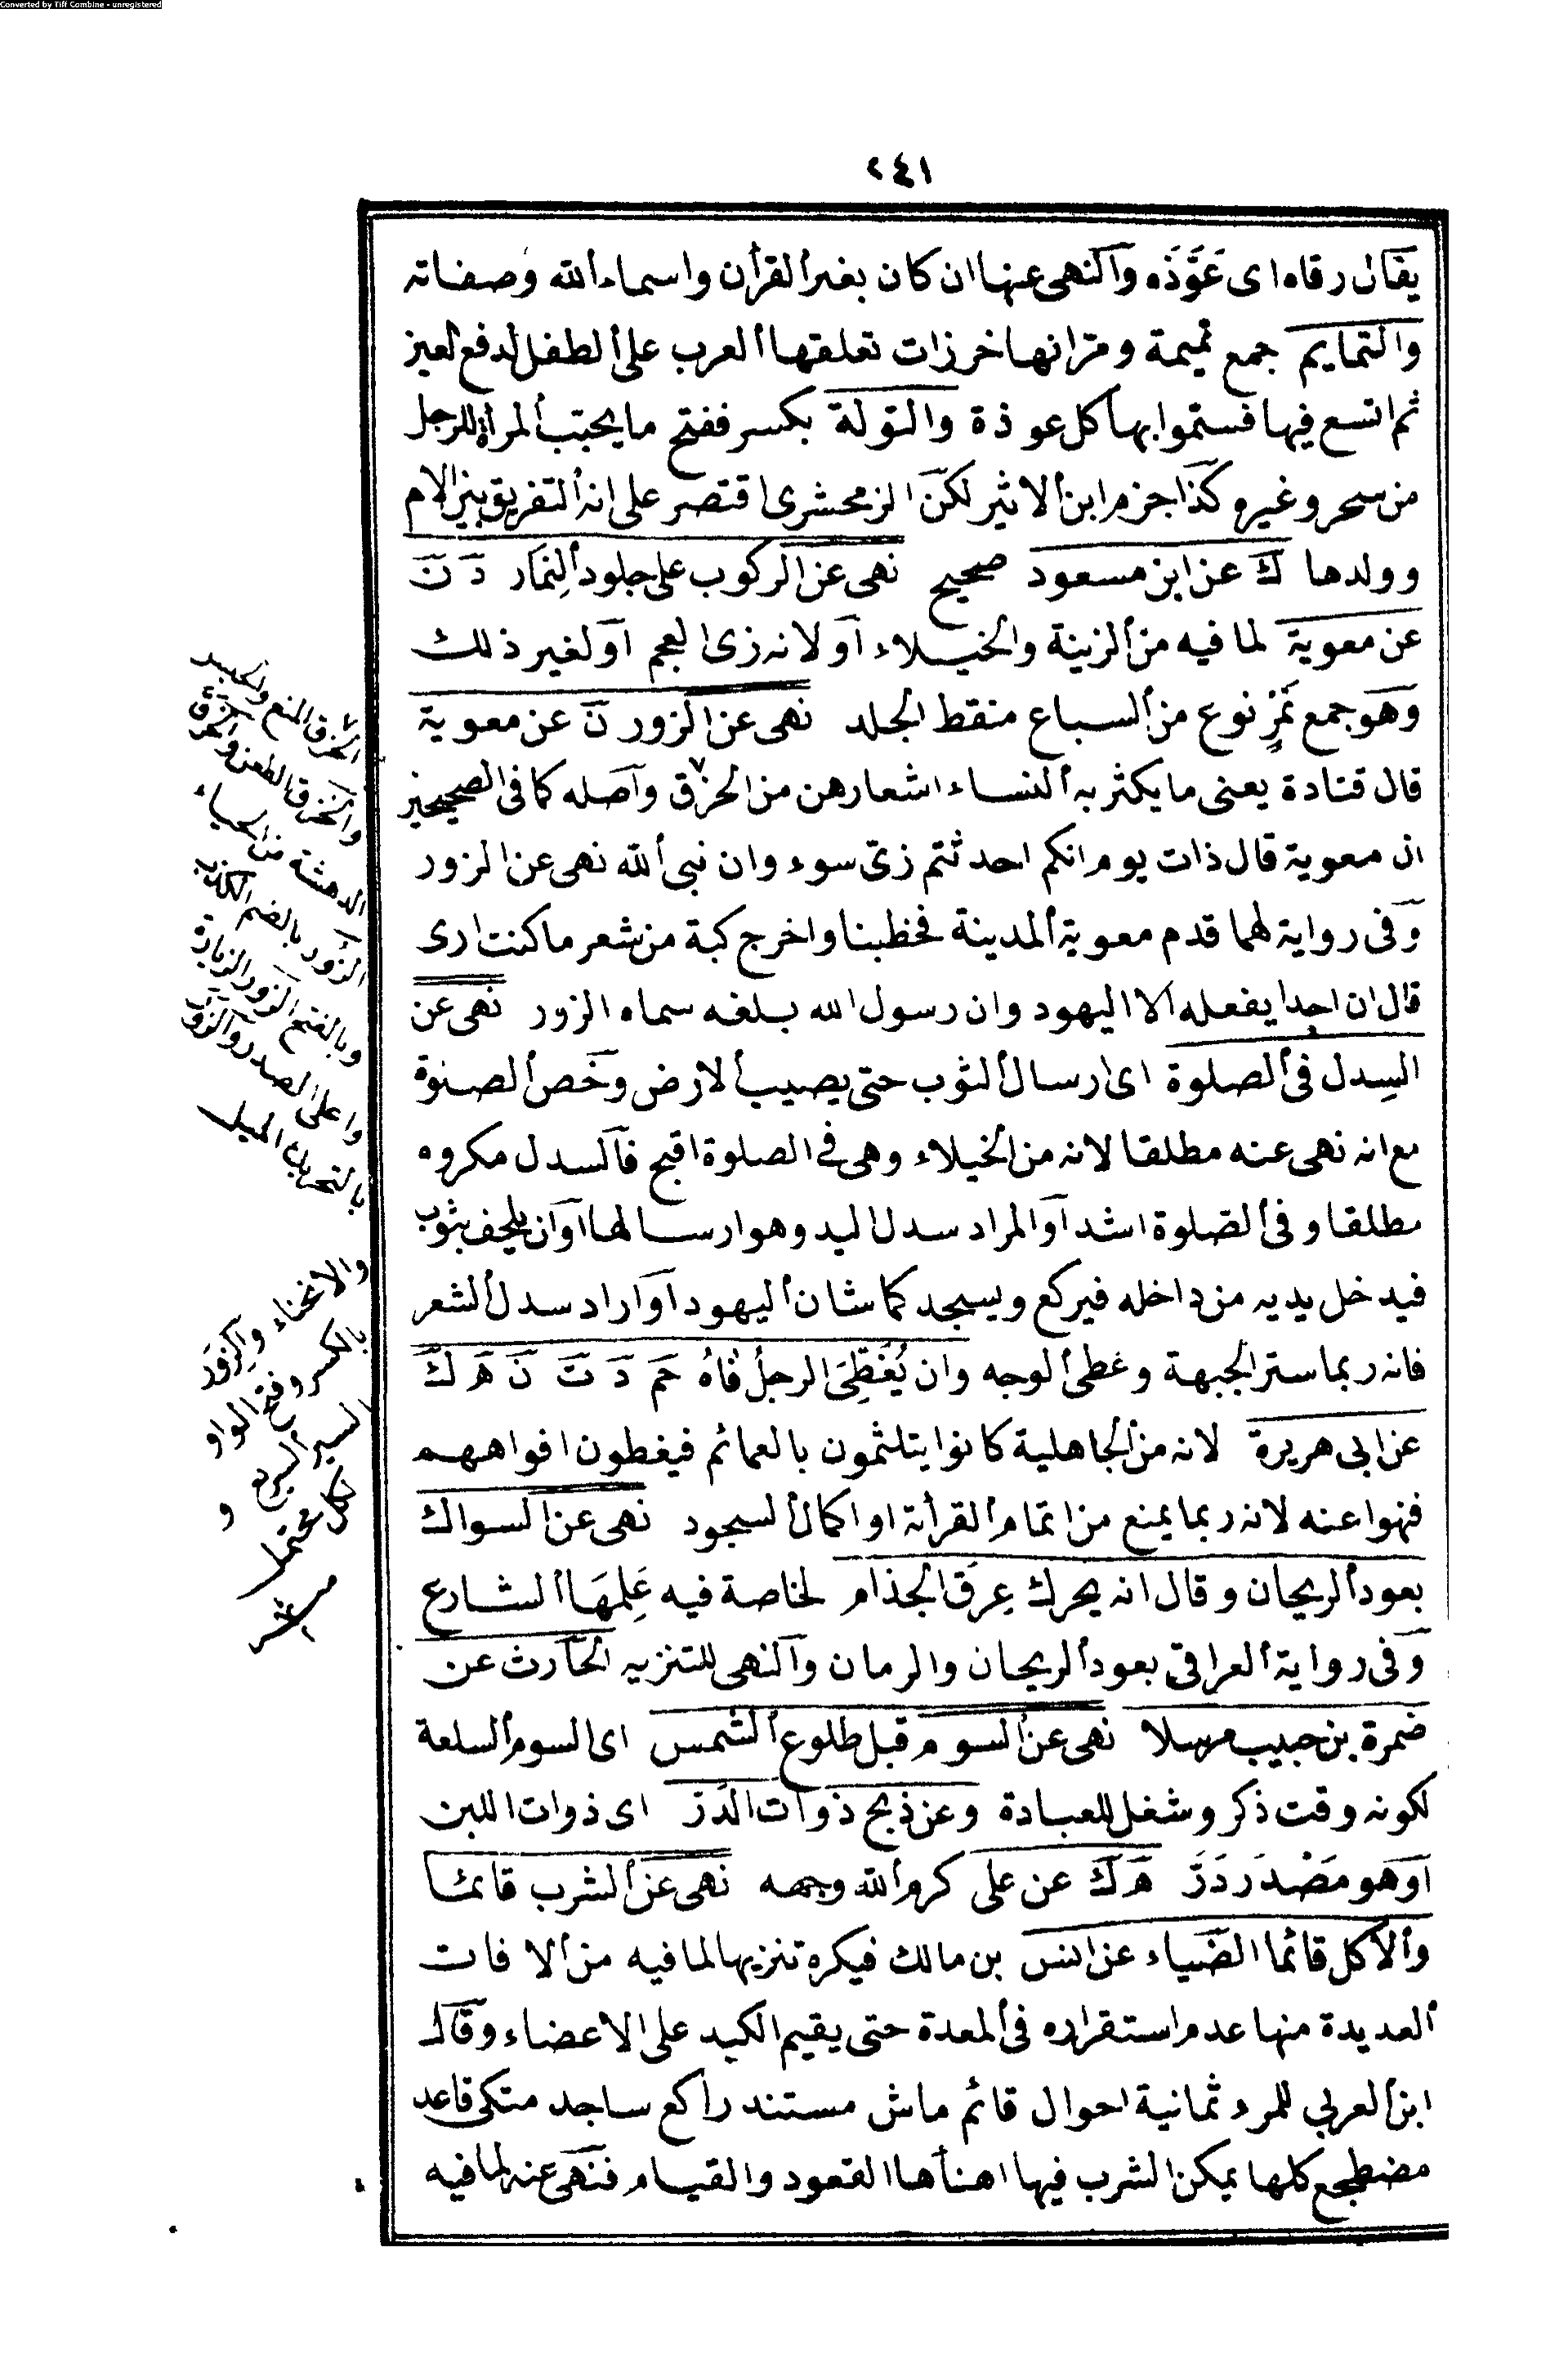 Converted by Tiff Combine - unregistered
٢٤١
يقال رقاه اى عَوَّذَه والنهى عنها ان كان بغير القرأن واسماء الله وصفاته
والتمايم جمع تميمة ومر انها خرزات تعلقها العرب على الطفل لدفع العين
ثم اتسع فيها فسموا بها كل عوذة والتولة بكسر ففتح ما يحبب المرأة للرجل
من سحر وغيره كذا جزم ابن الاثير لكن الزمخشرى اقتصر على انه التفريق بين الام
وولدها ك عن ابن مسعود صحيح نهى عن الركوب على جلود النِمَار د ن
عن معوية لما فيه من الزينة والخيلاء او لانه زى العجم او لغير ذلك
وهو جمع نَمِرٍ نوع من السباع منقط الجلد نهى عن الزور ن عن معوية
قال قتادة يعنى ما يكثر به النساء اشعارهن من الخرق واصله كما فى الصحيحين
ان معوية قال ذات يوم انكم احدثتم زىّ سوء وان نبى الله نهى عن الزور
وفى رواية لهما قدم معوية المدينة فخطبنا واخرج كبة من شعر ما كنت ارى
قال ان احدا يفعله الا اليهود وان رسول الله بلغه سماه الزور نهى عن
السدل فى الصلوة اى ارسال الثوب حتى يصيب الارض وخص الصلوة
مع انه نهى عنه مطلقا لانه من الخيلاء وهى فى الصلوة اقبح فالسدل مكروه
مطلقا و فى الصلوة اشد او المراد سدل اليد وهو ارسالها او ان يلتحف بثوب
فيدخل يديه من داخله فيركع ويسجد كما شان اليهود او اراد سدل الشعر
فانه ربما ستر الجبهة وغطى الوجه وان يُغَطِّىَ الرجلُ فَاهُ حم د ت ن ه ك
عن ابى هريرة لانه من الجاهلية كانوا يتلثمون بالعمائم فيغطون افواههم
فنهوا عنه لانه ربما يمنع من اتمام القرأة او اكمال السجود نهى عن السواك
بعود الريحان وقال انه يحرك عِرَق الجذام لخاصة فيه عَلِمَهَا الشارع
وفى رواية العراقى بعود الريحان والرمان والنهى للتنزيه الحارث عن
ضمرة بن حبيب مرسلا نهى عن السوم قبل طلوع الشمس اى السوم السلعة
لكونه وقت ذكر وشغل للعبادة وعن ذبح ذوات الدَرّ اى ذوات اللبن
او هو مَصْدَر دَرَّ ه ك عن على كرم الله وجهه نهى عن الشرب قائما
والاكل قائما الضياء عن انس بن مالك فيكره تنزيها لما فيه من الافات
العديدة منها عدم استقراره فى المعدة حتى يقيم الكبد على الاعضاء وقال
ابن العربي للمرء ثمانية احوال قائم ماش مستند راكع ساجد متكى قاعد
مضطجع كلها يمكن الشرب فيها اهنأها القعود والقيام فنهى عنه لما فيه
الخرق المنع والحبس
والخرق الطعن والخرق
الدهشة من الحياء
الزُور بالضم الكذب
وبالفتح الزَور الزيارة
واعلى الصدر والزَوَر
بالتحريك الميل
والانحناء والزِوَر
بالكسر وفتح الواو
السير السريع و
كل محتمل